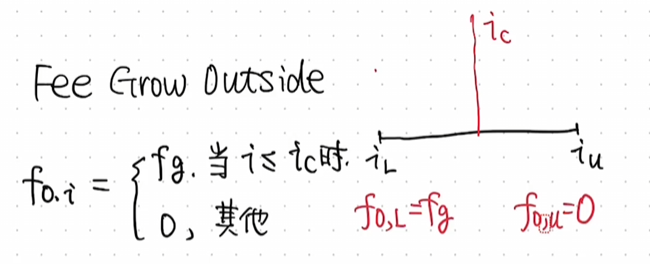 Fee Grow Outside
i_c
f_{0,i} = { fg. 当 i ≤ i_c时.
0, 其他
i_L
i_u
f_{0,L}=fg
f_{0,u}=0